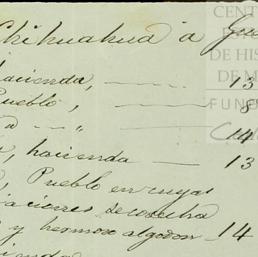 Chihuahua a
hacienda, 13
Pueblo, 8
a " , 14
, hacienda 13
, Pueblo en cuyas
aciones se cosecha
y hermoso algodon 14
cienda
CENT
DE
DE HIS
DE M
FUN